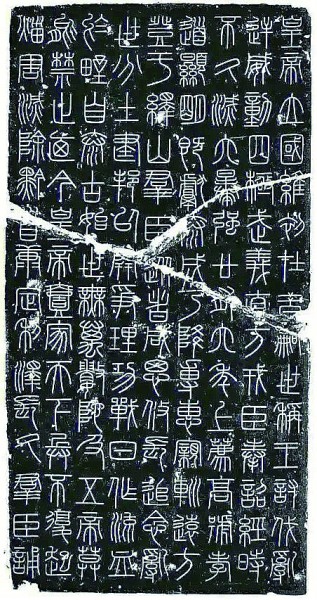 皇帝立國維初在昔嗣世稱王討伐亂
逆威動四極武義直方戎臣奉詔經時
不久滅六暴強廿有六年上薦高號孝
道顯明既獻泰成乃降尃惠寴巡遠方
登于繹山群臣從者咸思攸長追念亂
世分土建邦以開爭理功戰日作流血
於野自泰古始世無萬數陀及五帝莫
能禁止廼今皇帝壹家天下兵不復起
烖害滅除黔首康定利澤長久群臣誦